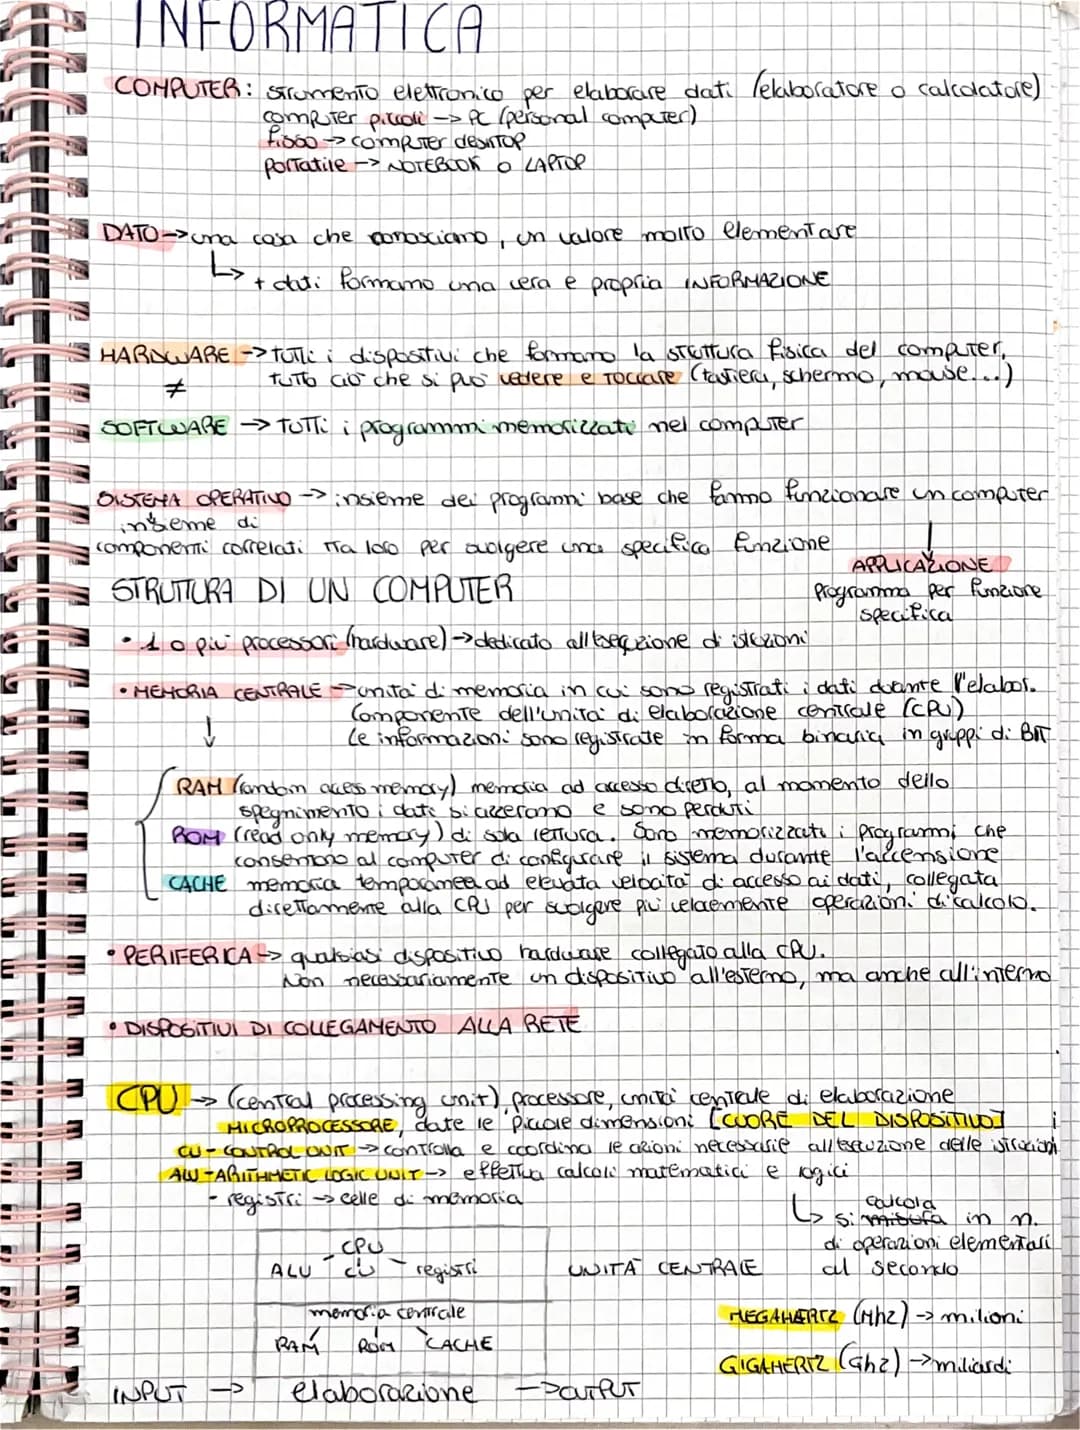 INFORMATICA
COMPUTER: strumento elettronico per elaborare dati (elaboratore o calcolatore)
computer piccoli -> PC (personal computer)
fisso -> computer desktop
portatile -> NOTEBOOK o LAPTOP
DATO -> una cosa che conosciamo, un valore molto elementare
↳ + dati formano una vera e propria INFORMAZIONE
HARDWARE -> tutti i dispositivi che formano la struttura fisica del computer,
≠ tutto ciò che si può vedere e toccare (tastiera, schermo, mouse...)
SOFTWARE -> tutti i programmi memorizzati nel computer
SISTEMA OPERATIVO -> insieme dei programmi base che fanno funzionare un computer
insieme di
componenti correlati tra loro per svolgere una specifica funzione
↓
APPLICAZIONE
programma per funzione
specifica
STRUTTURA DI UN COMPUTER
• 1 o più processori (hardware) -> dedicato all'esecuzione di istruzioni
• MEMORIA CENTRALE -> unità di memoria in cui sono registrati i dati durante l'elabor.
↓ Componente dell'unità di elaborazione centrale (CPU)
Le informazioni sono registrate in forma binaria, in gruppi di BIT
RAM (random acess memory) memoria ad accesso diretto, al momento dello
spegnimento i dati si azzerano e sono perduti
ROM (read only memory) di sola lettura. Sono memorizzati i programmi che
consentono al computer di configurare il sistema durante l'accensione
CACHE memoria temporanea ad elevata velocità di accesso ai dati, collegata
direttamente alla CPU per svolgere più velocemente operazioni di calcolo.
• PERIFERICA -> qualsiasi dispositivo hardware collegato alla CPU.
Non necessariamente un dispositivo all'esterno, ma anche all'interno
• DISPOSITIVI DI COLLEGAMENTO ALLA RETE
CPU -> (central processing unit), processore, unità centrale di elaborazione
MICROPROCESSORE, date le piccole dimensioni [CUORE DEL DISPOSITIVO]
CU - CONTROL UNIT -> controlla e coordina le azioni necessarie all'esecuzione delle istruzioni
ALU - ARITHMETIC LOGIC UNIT -> effettua calcoli matematici e logici
- registri -> celle di memoria
↳ si misura calcola in n.
di operazioni elementari
al secondo
CPU
ALU CU registri
UNITÀ CENTRALE
memoria centrale
RAM ROM CACHE
MEGAHERTZ (Mhz) -> milioni
GIGAHERTZ (Ghz) -> miliardi
INPUT -> elaborazione -> OUTPUT